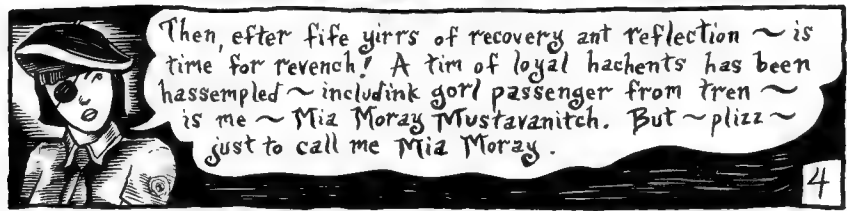 Then, efter fife yirrs of recovery ant reflection ~ is
time for revench! A tim of loyal hachents has been
hassempled ~ includink gorl passenger from tren ~
is me ~ Mia Moray Mustavanitch. But ~ plizz ~
just to call me Mia Moray.
4